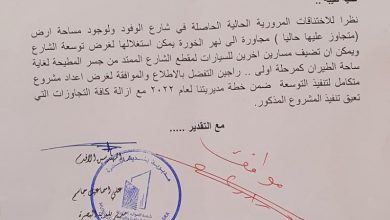 نظرا للاختناقات المرورية الحالية الحاصلة في شارع الوفود ولوجود مساحة ارض
(متجاوز عليها حاليا ) مجاورة الى نهر الخورة يمكن استغلالها لغرض توسعة الشارع
ويمكن ان تضيف مسارين اخرين للسيارات لمقطع الشارع الممتد من جسر المطيحة لغاية
ساحة الطيران كمرحلة اولى .. راجين التفضل بالاطلاع والموافقة لغرض اعداد مشروع
متكامل لتنفيذ التوسعة ضمن خطة مديريتنا لعام ٢٠٢٢ مع ازالة كافة التجاوزات التي
تعيق تنفيذ المشروع المذكور.
مع التقدير .....
علي اسماعيل جاسم